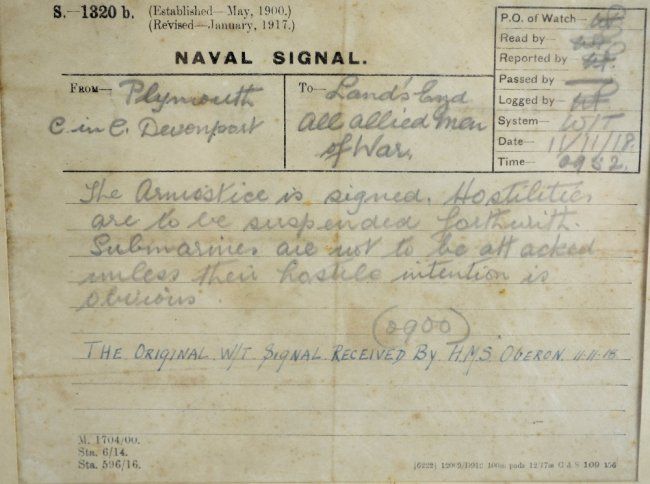 S.—1320 b. (Established—May, 1900.)
(Revised—January, 1917.)
NAVAL SIGNAL.
P.O. of Watch—
Read by—
Reported by—
Passed by—
Logged by—
System— W/T
Date— 11/11/18.
Time— 0952.
From— Plymouth
C. in C. Devonport
To— Land's End
All allied Men
of War.
The Armistice is signed. Hostilities
are to be suspended forthwith.
Submarines are not to be attacked
unless their hostile intention is
obvious
(0900)
THE ORIGINAL W/T SIGNAL RECEIVED BY H.M.S. OBERON. 11-11-18.
M. 1704/00.
Sta. 6/14.
Sta. 596/16.
100m pads 12/17m G & S 109 156